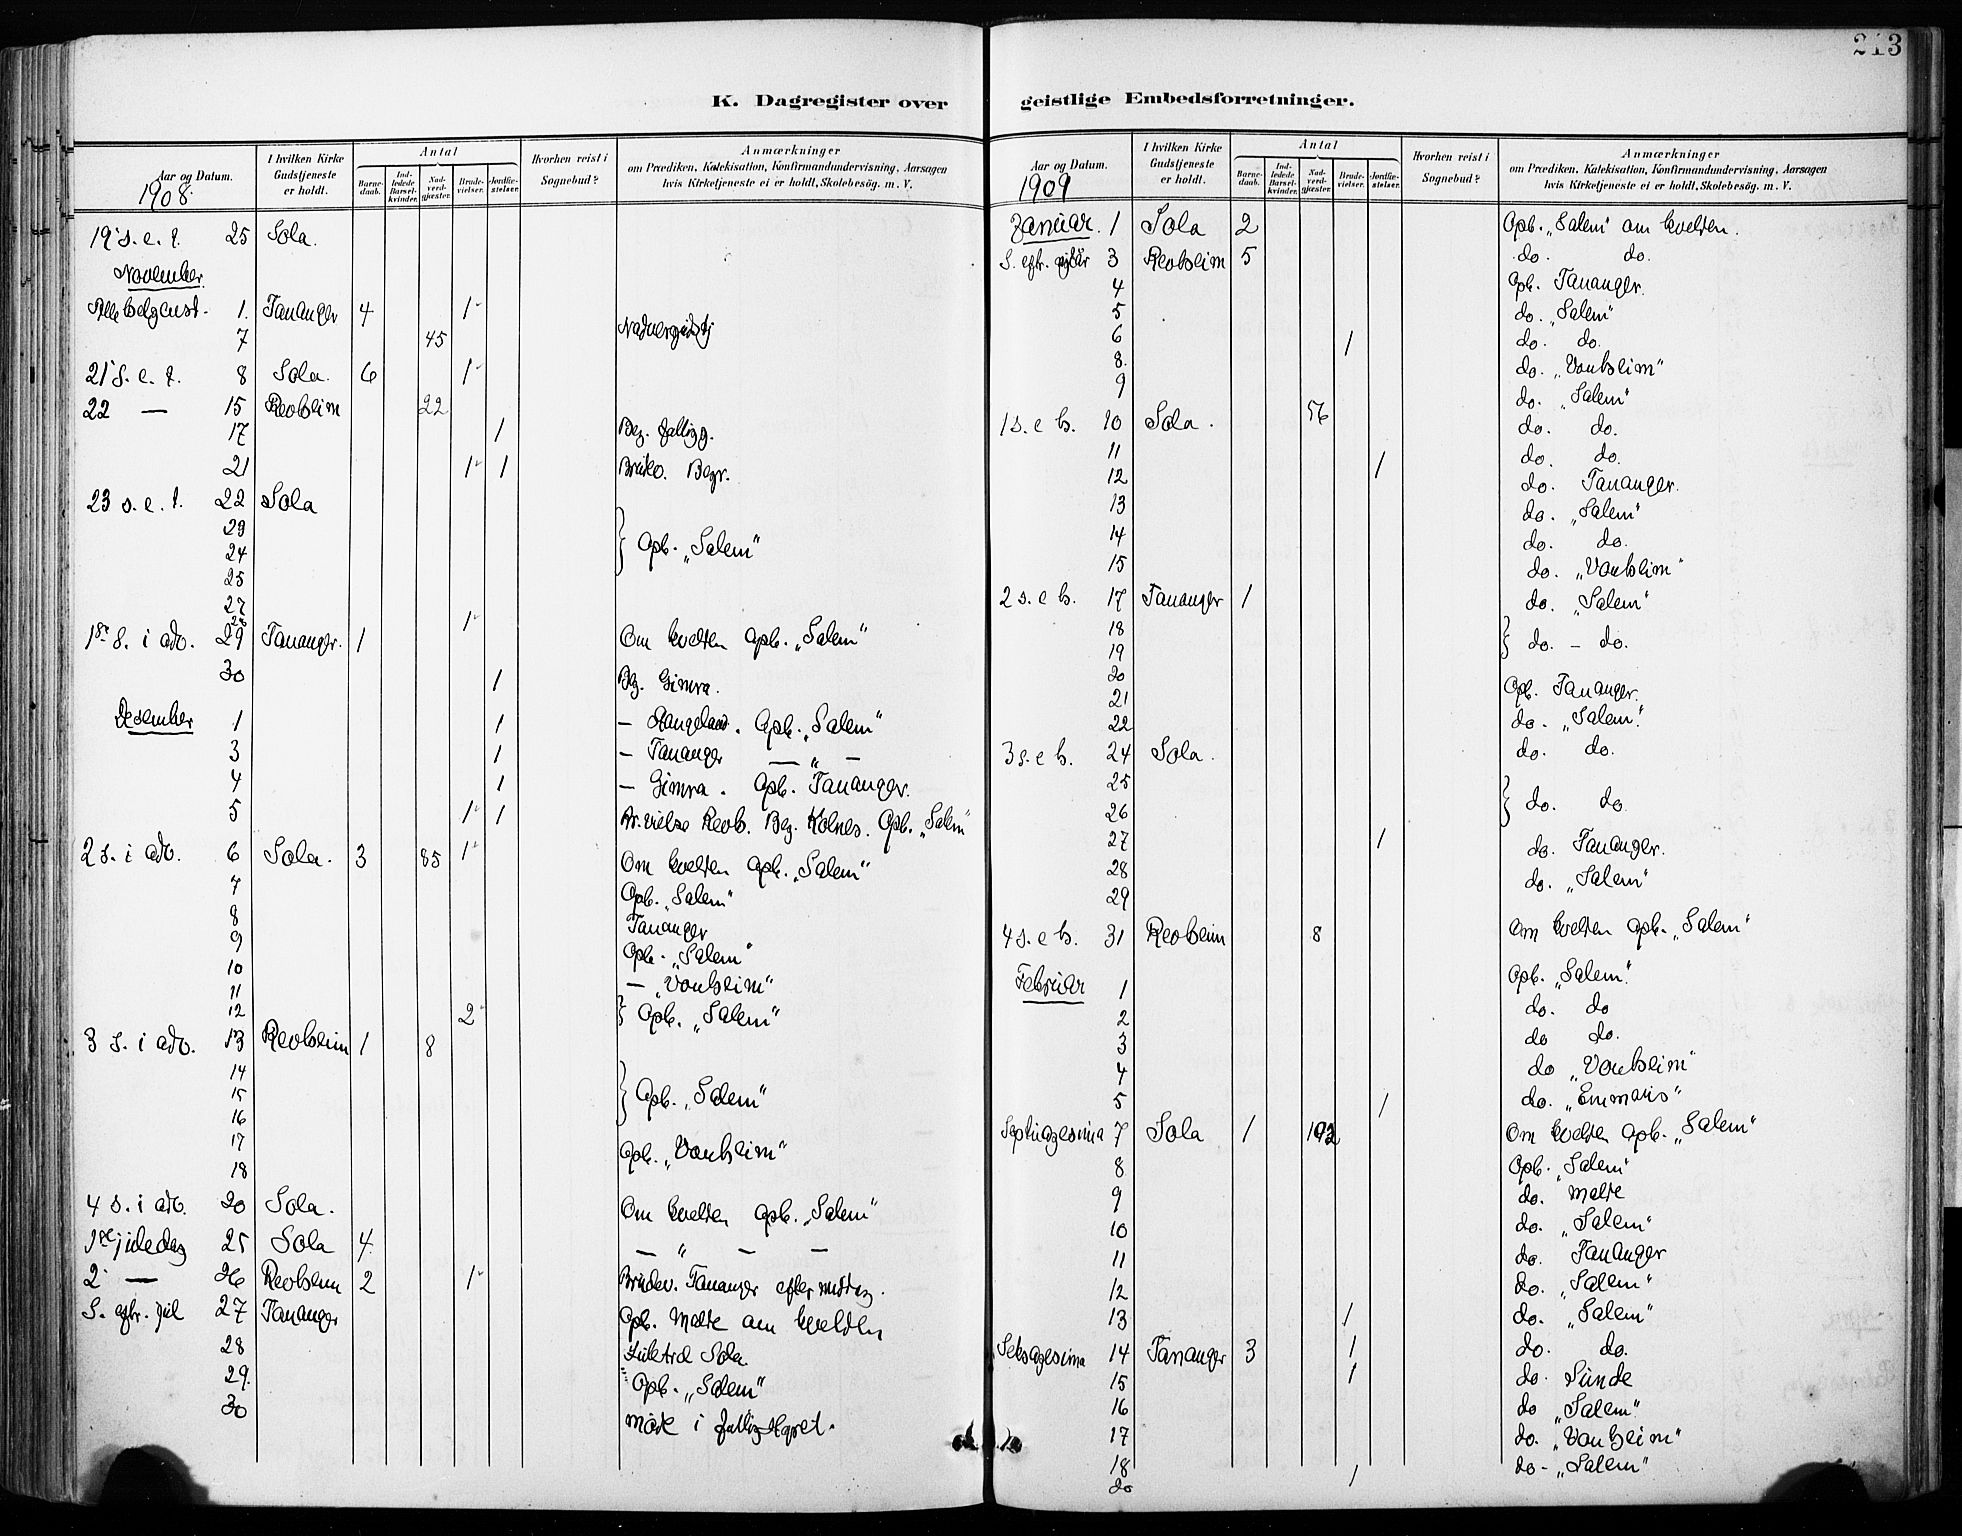 213
K. Dagregister over
Aar og Datum.
1908.
I hvilken Kirke Gudstjeneste er holdt.
Antal
Barne-daab.
Ind-ledede Barsel-kvinder.
Nad-verd-gjæster.
Brude-vielser.
Jordfæ-stelser.
Hvorhen reist i Sognebud?
Anmærkninger
om Prædiken, Katekisation, Konfirmandundervisning, Aarsagen
hvis Kirketjeneste ei er holdt, Skolebesøg. m. V.
19 s. e. t. 25 Sola.
November
Alle helgenst. 1. Tananger 4 1
7 45
21 s. e. t. 8 Sola. 6 1
22 — 15 Revheim 22
17 1 Beg.
21 1 1 Brudv. Begr.
23 s. e. t. 22 Sola
23
24 } Opb. „Salem"
25
27 1
28
1ste s. i adv. 29 Tananger. 1 Om kvelden Opb. „Salem"
30 1 Beg. Gimra.
Desember 1 1 — Stangeland. Opb. „Salem"
3 1 — Tananger — „ —
4 1 — Gimra. Opb. Tananger.
5 1 1 Br. vielse Revh. Beg. Kolnes. Opb. „Salem"
2 s. i adv. 6 Sola. 3 85 1 Om kvelden Opb. „Salem"
7 Opb. „Salem"
8 Tananger
9 Opb. „Salem"
10 — „Vonheim"
11
12 2 } Opb. „Salem"
3 s. i adv. 13 Revheim 1 8
14
15 } Opb. „Salem"
16
17 Opb. „Vonheim"
18
4 s. i adv. 20 Sola. Om kvelden Opb. „Salem"
1ste juledag 25 Sola 4 — „ — —
2 — 26 Revheim 2 1 Brudev. Tananger eftermiddag.
S. eftr. jul 27 Tananger Opb. Malde om kvelden
28 Juletræ Sola
29. Opb. „Salem"
30 Møte i
geistlige Embedsforretninger.
Aar og Datum.
1909
I hvilken Kirke Gudstjeneste er holdt.
Antal
Barne-daab.
Ind-ledede Barsel-kvinder.
Nad-verd-gjæster.
Brude-vielser.
Jordfæ-stelser.
Hvorhen reist i Sognebud?
Anmærkninger
om Prædiken, Katekisation, Konfirmandundervisning, Aarsagen
hvis Kirketjeneste ei er holdt, Skolebesøg. m. V.
Januar. 1 Sola 2 Opb. „Salem" om kvelden.
S. eftr. nytår 3 Revheim 5 do. do.
4 Opb. Tananger.
5 do. „Salem"
6 1 do. do.
8. do. „Vonheim"
9 do. „Salem"
1 s. e h. 10 Sola. 56 do. do.
11 do. do.
12 1 do. Tananger.
13 do. „Salem"
14 do. do.
15 do. „Vonheim"
2 s. e h. 17 Tananger 1 do. „Salem"
18 } do. — do.
19
20 Opb. Tananger.
21 do. „Salem".
22
3 s. e h. 24 Sola. do. do.
25 } do. do
26
27 1 do. Tananger.
28 do. „Salem"
29
4 s. e h. 31 Revheim 8 Om kvelden Opb. „Salem"
Februar 1 Opb. „Salem".
2 do. do
3 do do.
4 do „Vonheim"
5 1 do. „Emmaus"
Septuagesima 7 Sola 1 192 Om kvelden Opb. „Salem"
8 Opb. „Salem"
9 do. Malde
10 do. „Salem"
11 do. Tananger
12 do. „Salem"
13 1 do. „Salem"
Seksagesima 14 Tananger 3 1 do. do.
15 1 do. Sunde
16 do „Salem"
17 do. „Vonheim"
18 do. „Salem"
20 1